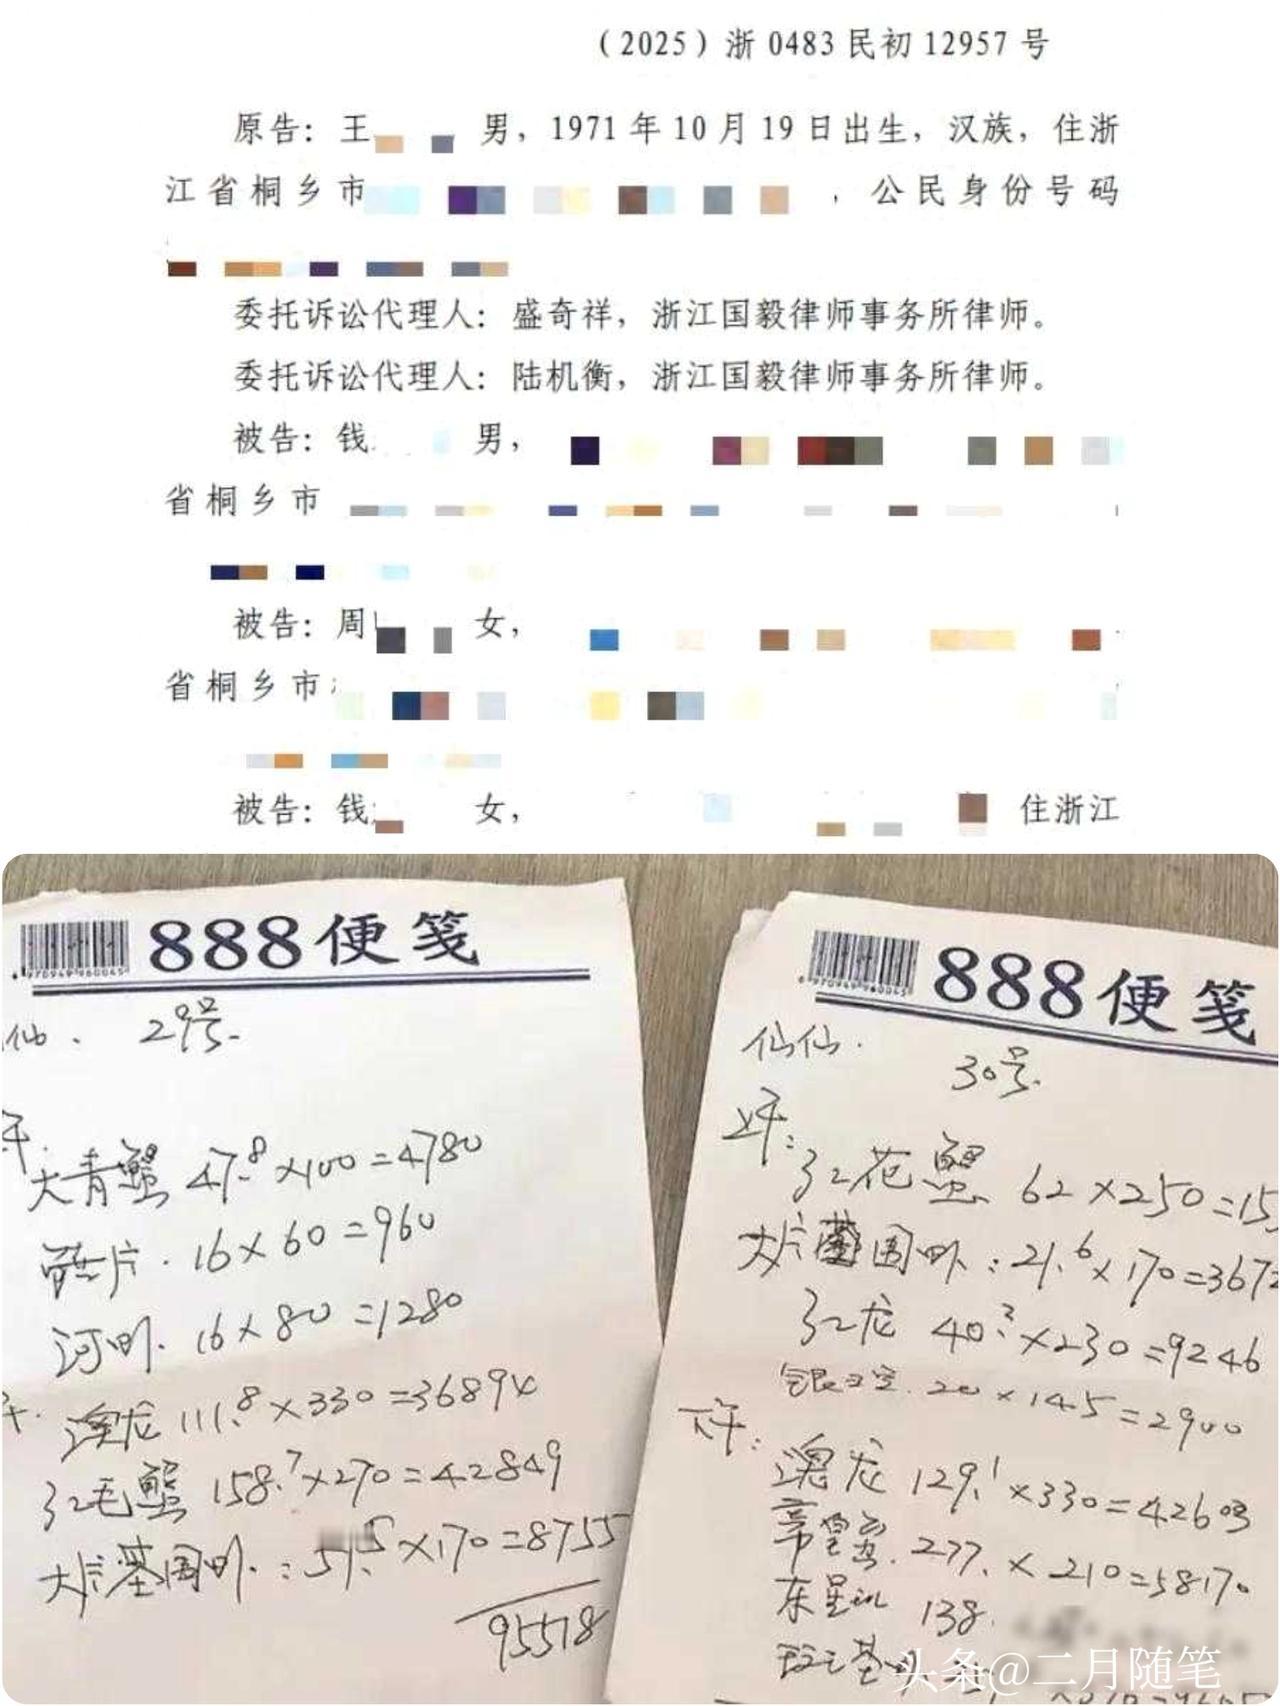 （2025）浙 0483 民初 12957 号
原告：王 男，1971 年 10 月 19 日出生，汉族，住浙
江省桐乡市 ，公民身份号码
委托诉讼代理人：盛奇祥，浙江国毅律师事务所律师。
委托诉讼代理人：陆机衡，浙江国毅律师事务所律师。
被告：钱 男，
省桐乡市
被告：周 女，
省桐乡市
被告：钱 女， 住浙江
888便笺
仙. 29号.
大青蟹 47.8×100=4780
16×60=960
河虾. 16×80=1280
澳龙 111.8×330=36894
红毛蟹 158.7×270=42849
大片基围虾.：51.5×170=8755
95518
888便笺
仙仙. 30号.
上午：
红花蟹 62×250=155
大片基围虾：21.6×170=3672
红龙 40.2×230=9246
20×145=2900
下午：
澳龙 129.1×330=42603
帝皇蟹. 277.×210=58170
东星 138.
头条@二月随笔